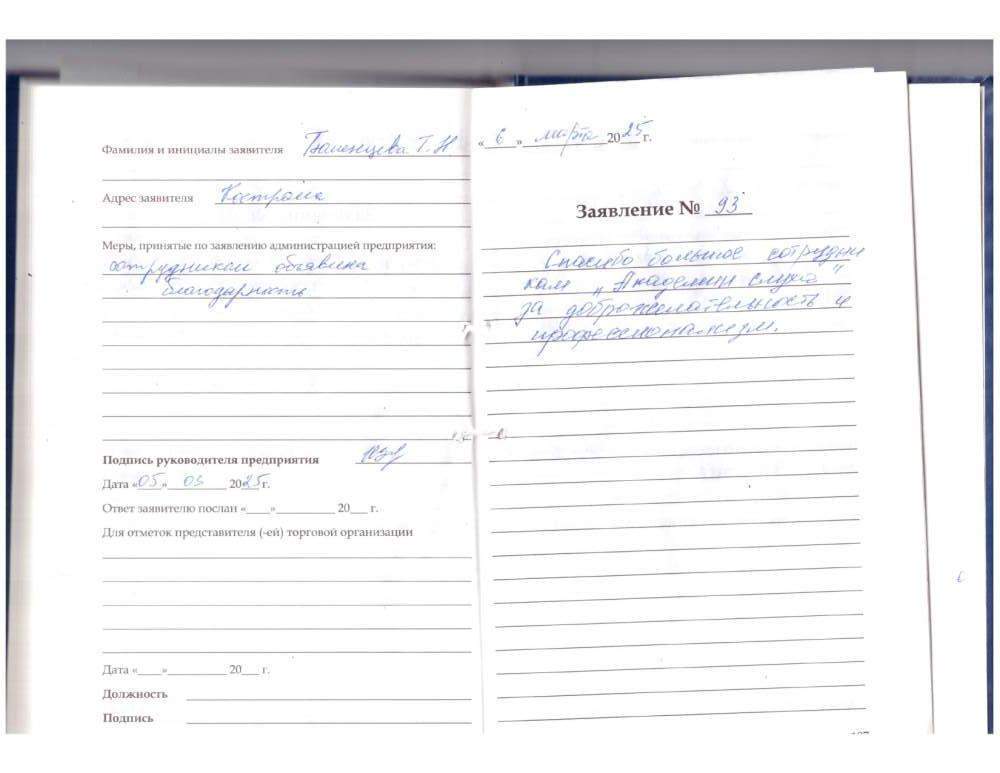 Фамилия и инициалы заявителя Т. Н
Адрес заявителя Кострома
Меры, принятые по заявлению администрацией предприятия:
сотрудникам объявлена
благодарность
Подпись руководителя предприятия
Дата «05» 03 2025 г.
Ответ заявителю послан «____»__________ 20___ г.
Для отметок представителя (-ей) торговой организации
Дата «____»__________ 20___ г.
Должность
Подпись
«6» марта 2025 г.
Заявление № 93
Спасибо большое сотрудни
кам "Академии слуха"
за доброжелательность и
профессионализм.